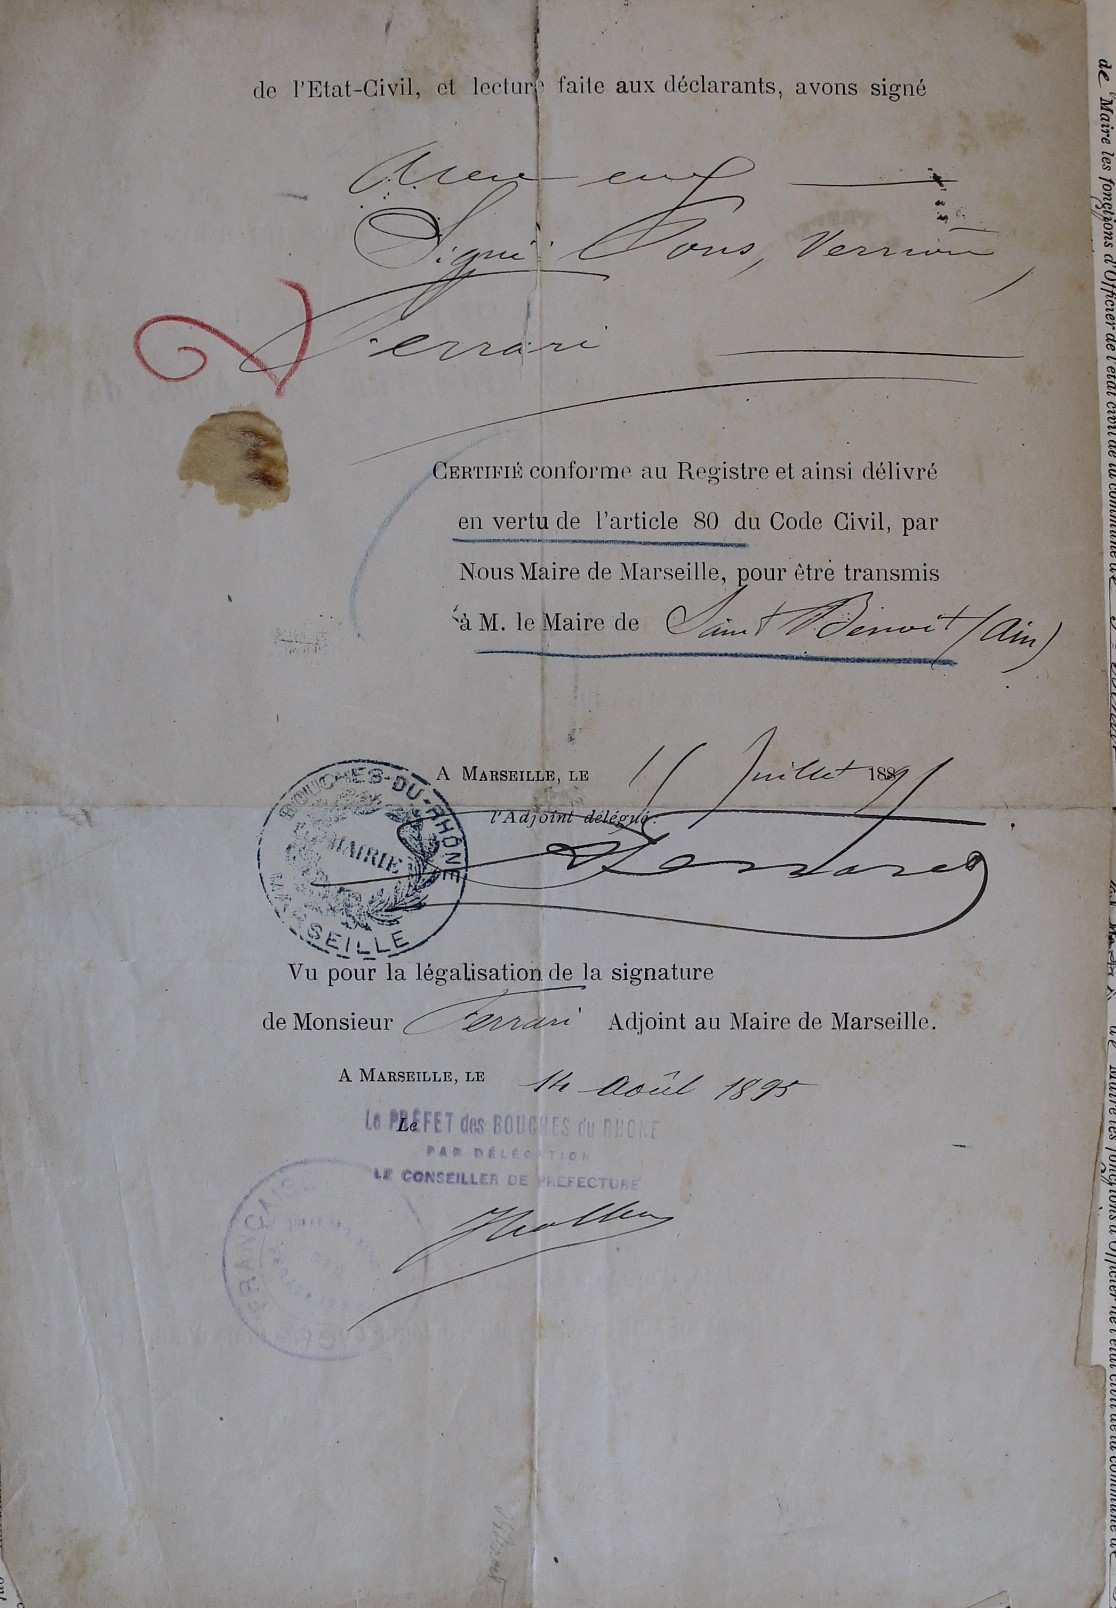 de l'Etat-Civil, et lecture faite aux déclarants, avons signé
avec eux
Signé: Pons, Verrion,
Ferrari
CERTIFIÉ conforme au Registre et ainsi délivré
en vertu de l'article 80 du Code Civil, par
Nous Maire de Marseille, pour être transmis
à M. le Maire de Saint Benoit (Ain)
A MARSEILLE, LE 15 Juillet 1895
l'Adjoint délégué.
BOUCHES-DU-RHÔNE
MAIRIE
MARSEILLE
Ferrari
Vu pour la légalisation de la signature
de Monsieur Ferrari Adjoint au Maire de Marseille.
A MARSEILLE, LE 14 Août 1895
Le
Le PRÉFET des BOUCHES du RHONE
PAR DÉLÉGATION
LE CONSEILLER DE PRÉFECTURE
FRANÇAISE
de Maire les fonctions d'Officier de l'état civil de la commune de
de Maire les fonctions d'Officier de l'état civil de la commune de